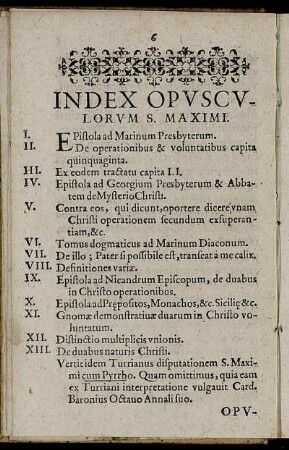 6
INDEX OPVSCV-
LORVM S. MAXIMI.
I. EPistola ad Marinum Presbyterum.
II. De operationibus & voluntatibus capita
quinquaginta.
III. Ex eodem tractatu capita LI.
IV. Epistola ad Georgium Presbyterum & Abba-
tem de Mysterio Christi.
V. Contra eos, qui dicunt, oportere dicere vnam
Christi operationem secundum exsuperan-
tiam, &c.
VI. Tomus dogmaticus ad Marinum Diaconum.
VII. De illo; Pater si possibile est, transeat à me calix.
VIII. Definitiones variæ.
IX. Epistola ad Nicandrum Episcopum, de duabus
in Christo operationibus.
X. Epistola ad Prępositos, Monachos, &c. Sicilię &c.
XI. Gnomæ demonstratiuæ duarum in Christo vo-
luntatum.
XII. Distinctio multiplicis vnionis.
XIII. De duabus naturis Christi.
Vertit idem Turrianus disputationem S. Maxi-
mi cum Pyrrho. Quam omittimus, quia eam
ex Turriani interpretatione vulgauit Card.
Baronius Octauo Annali suo.
OPV-